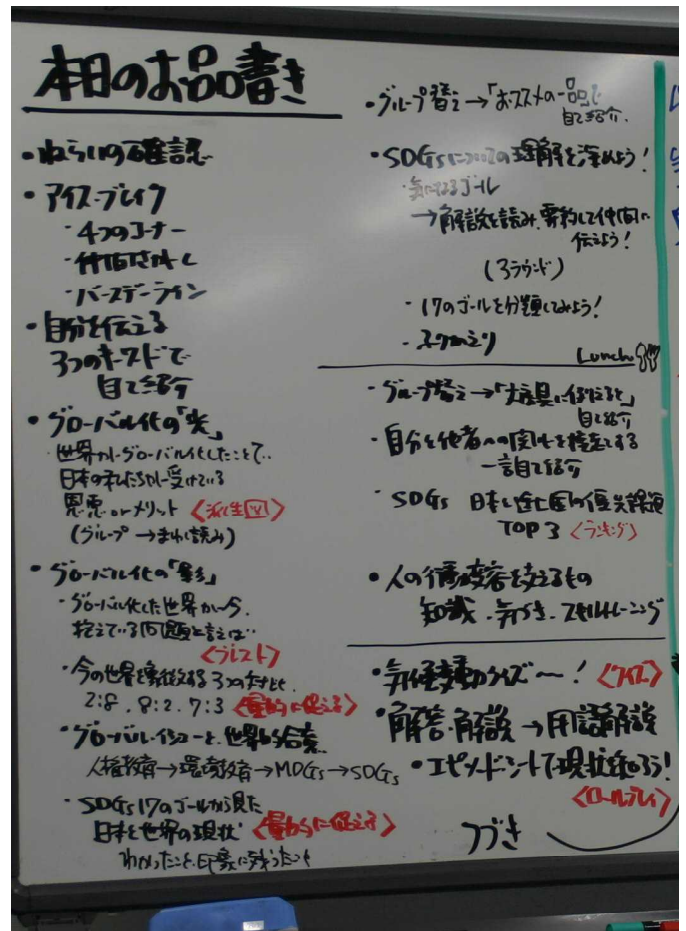 本日のお品書き
・ねらいの確認
・アイスブレイク
・4つのコーナー
・仲間さがし
・バースデーライン
・自分を伝える
3つのキーワードで
自己紹介
・グローバル化の「光」
・世界がグローバル化したことで‥
日本の私たちが受けている
恩恵orメリット〈派生図〉
(グループ→まわし読み)
・グローバル化の「影」
・グローバル化した世界が今、
抱えている問題と言えば‥
〈ブレスト〉
・今の世界を象徴する3つの対比
2:8、8:2、7:3〈量的に捉える〉
・グローバル・イシューと、世界的合意
人権教育→環境教育→MDGs→SDGs
・SDGs17のゴールから見た
日本と世界の現状〈量的に捉える〉
わかったこと、印象に残ったこと
・グループ替え→「おススメの一品」で
自己紹介
・SDGsについての理解を深めよう!
・気になるゴール
→解説を読み、要約して仲間に
伝えよう!
(3ラウンド)
・17のゴールを分類してみよう!
・ふりかえり
Lunch
・グループ替え→「文房具に例えると」
自己紹介
・自分と他者への関心を
一言自己紹介
・SDGs 日本と途上国の優先課題
TOP3〈ランキング〉
・人の行動変容を支えるもの
知識・気づき・スキルトレーニング
・気候変動クイズ〜!〈クイズ〉
・解答・解説→用語解説
・エピソードシートで現状を知ろう!
〈ロールプレイ〉
つづき